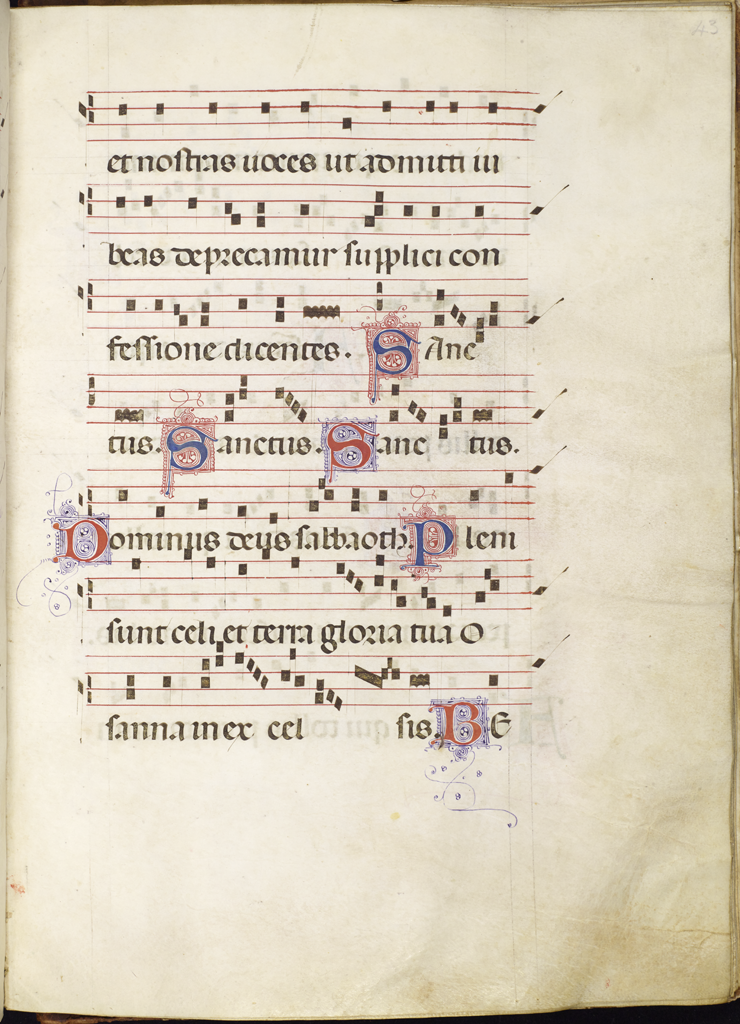 43
et nostras uoces ut admitti iu
beas deprecamur supplici con
fessione dicentes. Sanc
tus. Sanctus. Sanc tus.
Dominus deus sabbaoth. Pleni
sunt celi et terra gloria tua O
sanna in ex cel sis. BE